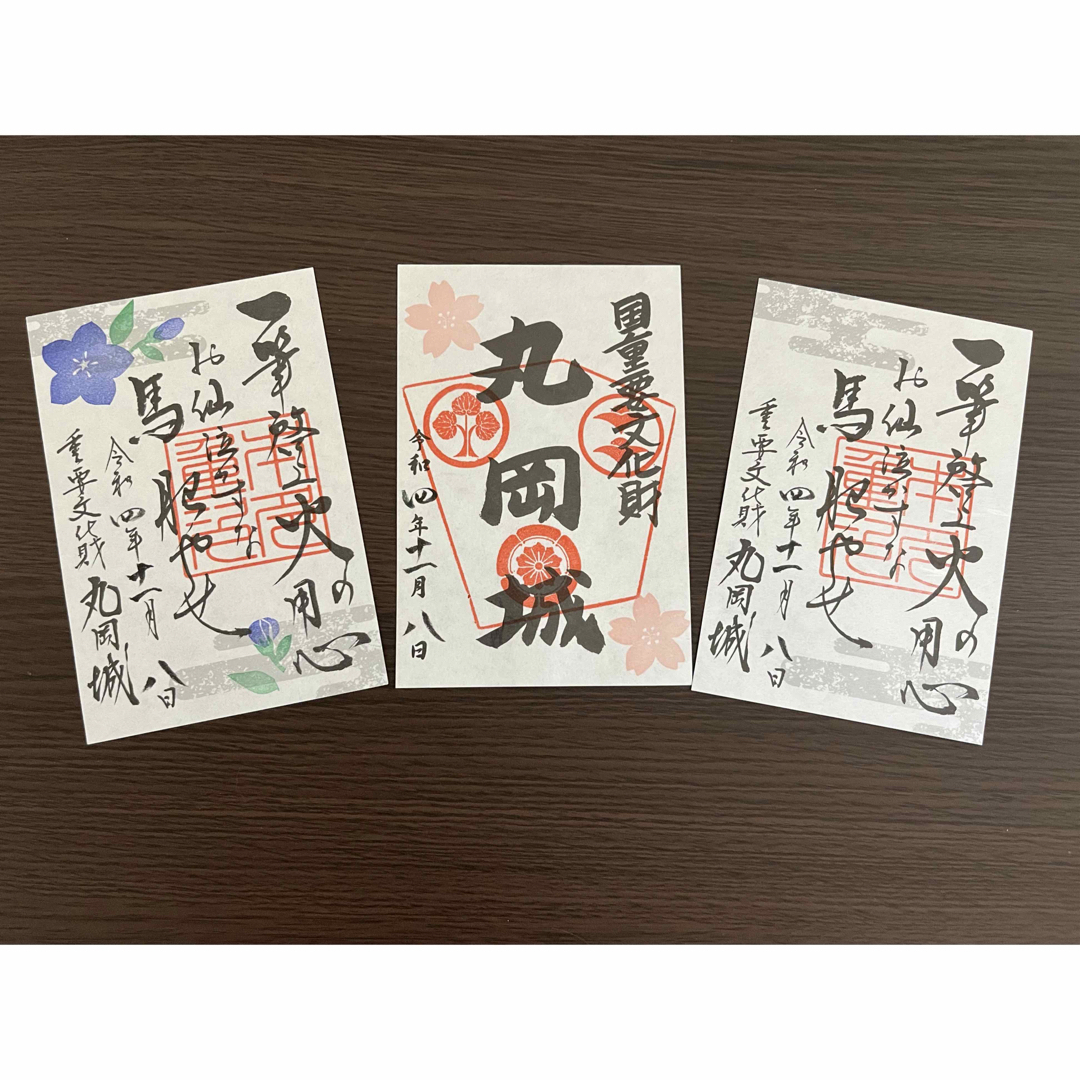 一筆啓上火の用心
お仙泣かすな
馬肥やせ
令和四年十一月八日
重要文化財 丸岡城
国重要文化財
丸岡城
令和四年十一月八日
一筆啓上火の用心
お仙泣かすな
馬肥やせ
令和四年十一月八日
重要文化財 丸岡城